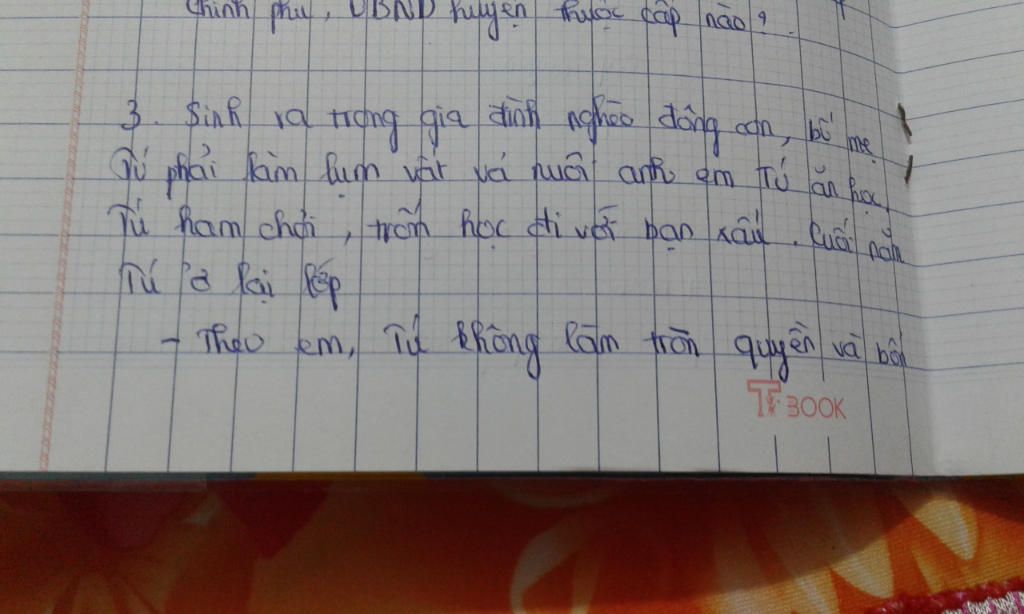 chính phủ, UBND huyện thuộc cấp nào?
3. Sinh ra trong gia đình nghèo đông con, bố mẹ
Tú phải làm lụm vất vả nuôi anh em Tú ăn học,
Tú ham chơi, trốn học đi với bạn xấu. Cuối năm
Tú ở lại lớp
- Theo em, Tú không làm tròn quyền và bổn
TBOOK